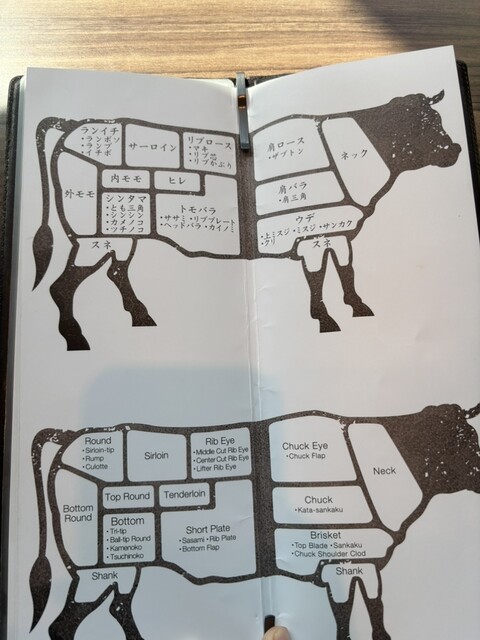 ランイチ
・ランボソ
・ランプ
・イチボ
サーロイン
リブロース
・マキ
・リブ芯
・リブかぶり
肩ロース
・ザブトン
ネック
外モモ
内モモ
ヒレ
肩バラ
・肩三角
シンタマ
・とも三角
・シンシン
・カメノコ
・ツチノコ
トモバラ
・ササミ ・リブプレート
・ヘッドバラ ・カイノミ
ウデ
・上ミスジ ・ミスジ ・サンカク
・クリ
スネ
スネ
Round
・Sirloin-tip
・Rump
・Culotte
Sirloin
Rib Eye
・Middle Cut Rib Eye
・Center Cut Rib Eye
・Lifter Rib Eye
Chuck Eye
・Chuck Flap
Neck
Bottom
Round
Top Round
Tenderloin
Chuck
・Kata-sankaku
Bottom
・Tri-tip
・Ball-tip Round
・Kamenoko
・Tsuchinoko
Short Plate
・Sasami ・Rib Plate
・Bottom Flap
Brisket
・Top Blade ・Sankaku
・Chuck Shoulder Clod
Shank
Shank